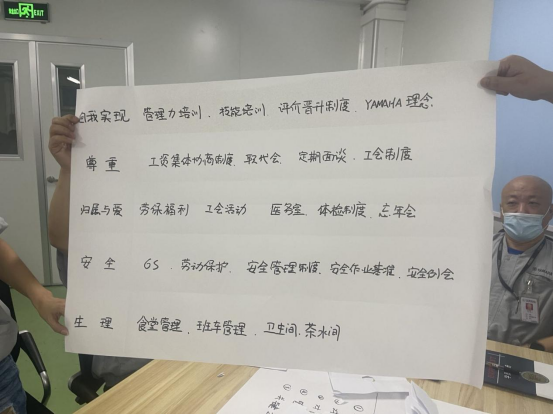 EXIT
自我实现 管理力培训、技能培训、评价晋升制度、YAMAHA 理念
尊重 工资集体协商制度、职代会、定期面谈、工会制度
归属与爱 劳保福利 工会活动 医务室、体检制度、忘年会
安全 6S、劳动保护、安全管理制度、安全作业基准、安全例会
生理 食堂管理、班车管理、卫生间、茶水间